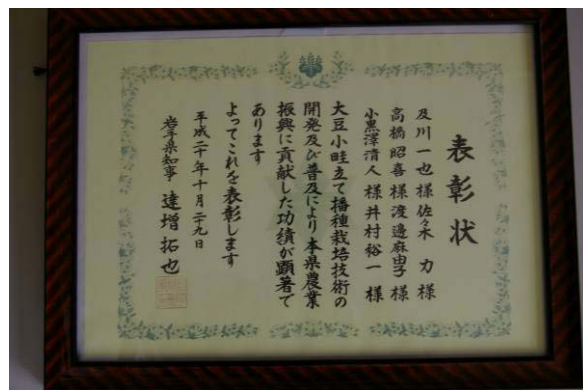 表彰状
及川一也様佐々木 力様
高橋昭喜様渡邉麻由子様
小黒澤清人様井村裕一様
大豆小畦立て播種栽培技術の
開発及び普及により本県農業
振興に貢献した功績が顕著で
あります
よってこれを表彰します
平成二十年十月二十九日
岩手県知事 達増拓也